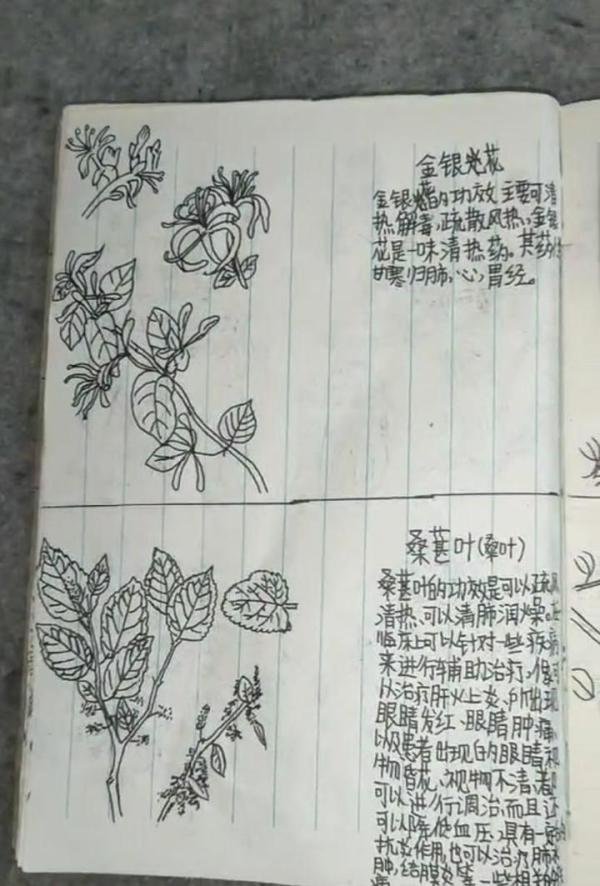 金银花
金银花的功效 主要可清
热解毒,疏散风热,金银
花是一味清热药。其药性
甘寒归肺,心,胃经。
桑葚叶(桑叶)
桑葚叶的功效是可以疏风
清热、可以清肺润燥。在
临床上可以针对一些疾病
来进行辅助治疗,像可
以治疗肝火上炎,所出现
眼睛发红、眼睛肿痛
以及患者出现的眼睛视
物昏花、视物不清者
可以进行调治,而且还
可以降低血压,具有一定的
抗炎作用,也可以治疗肺水
肿,结膜炎等一些相关